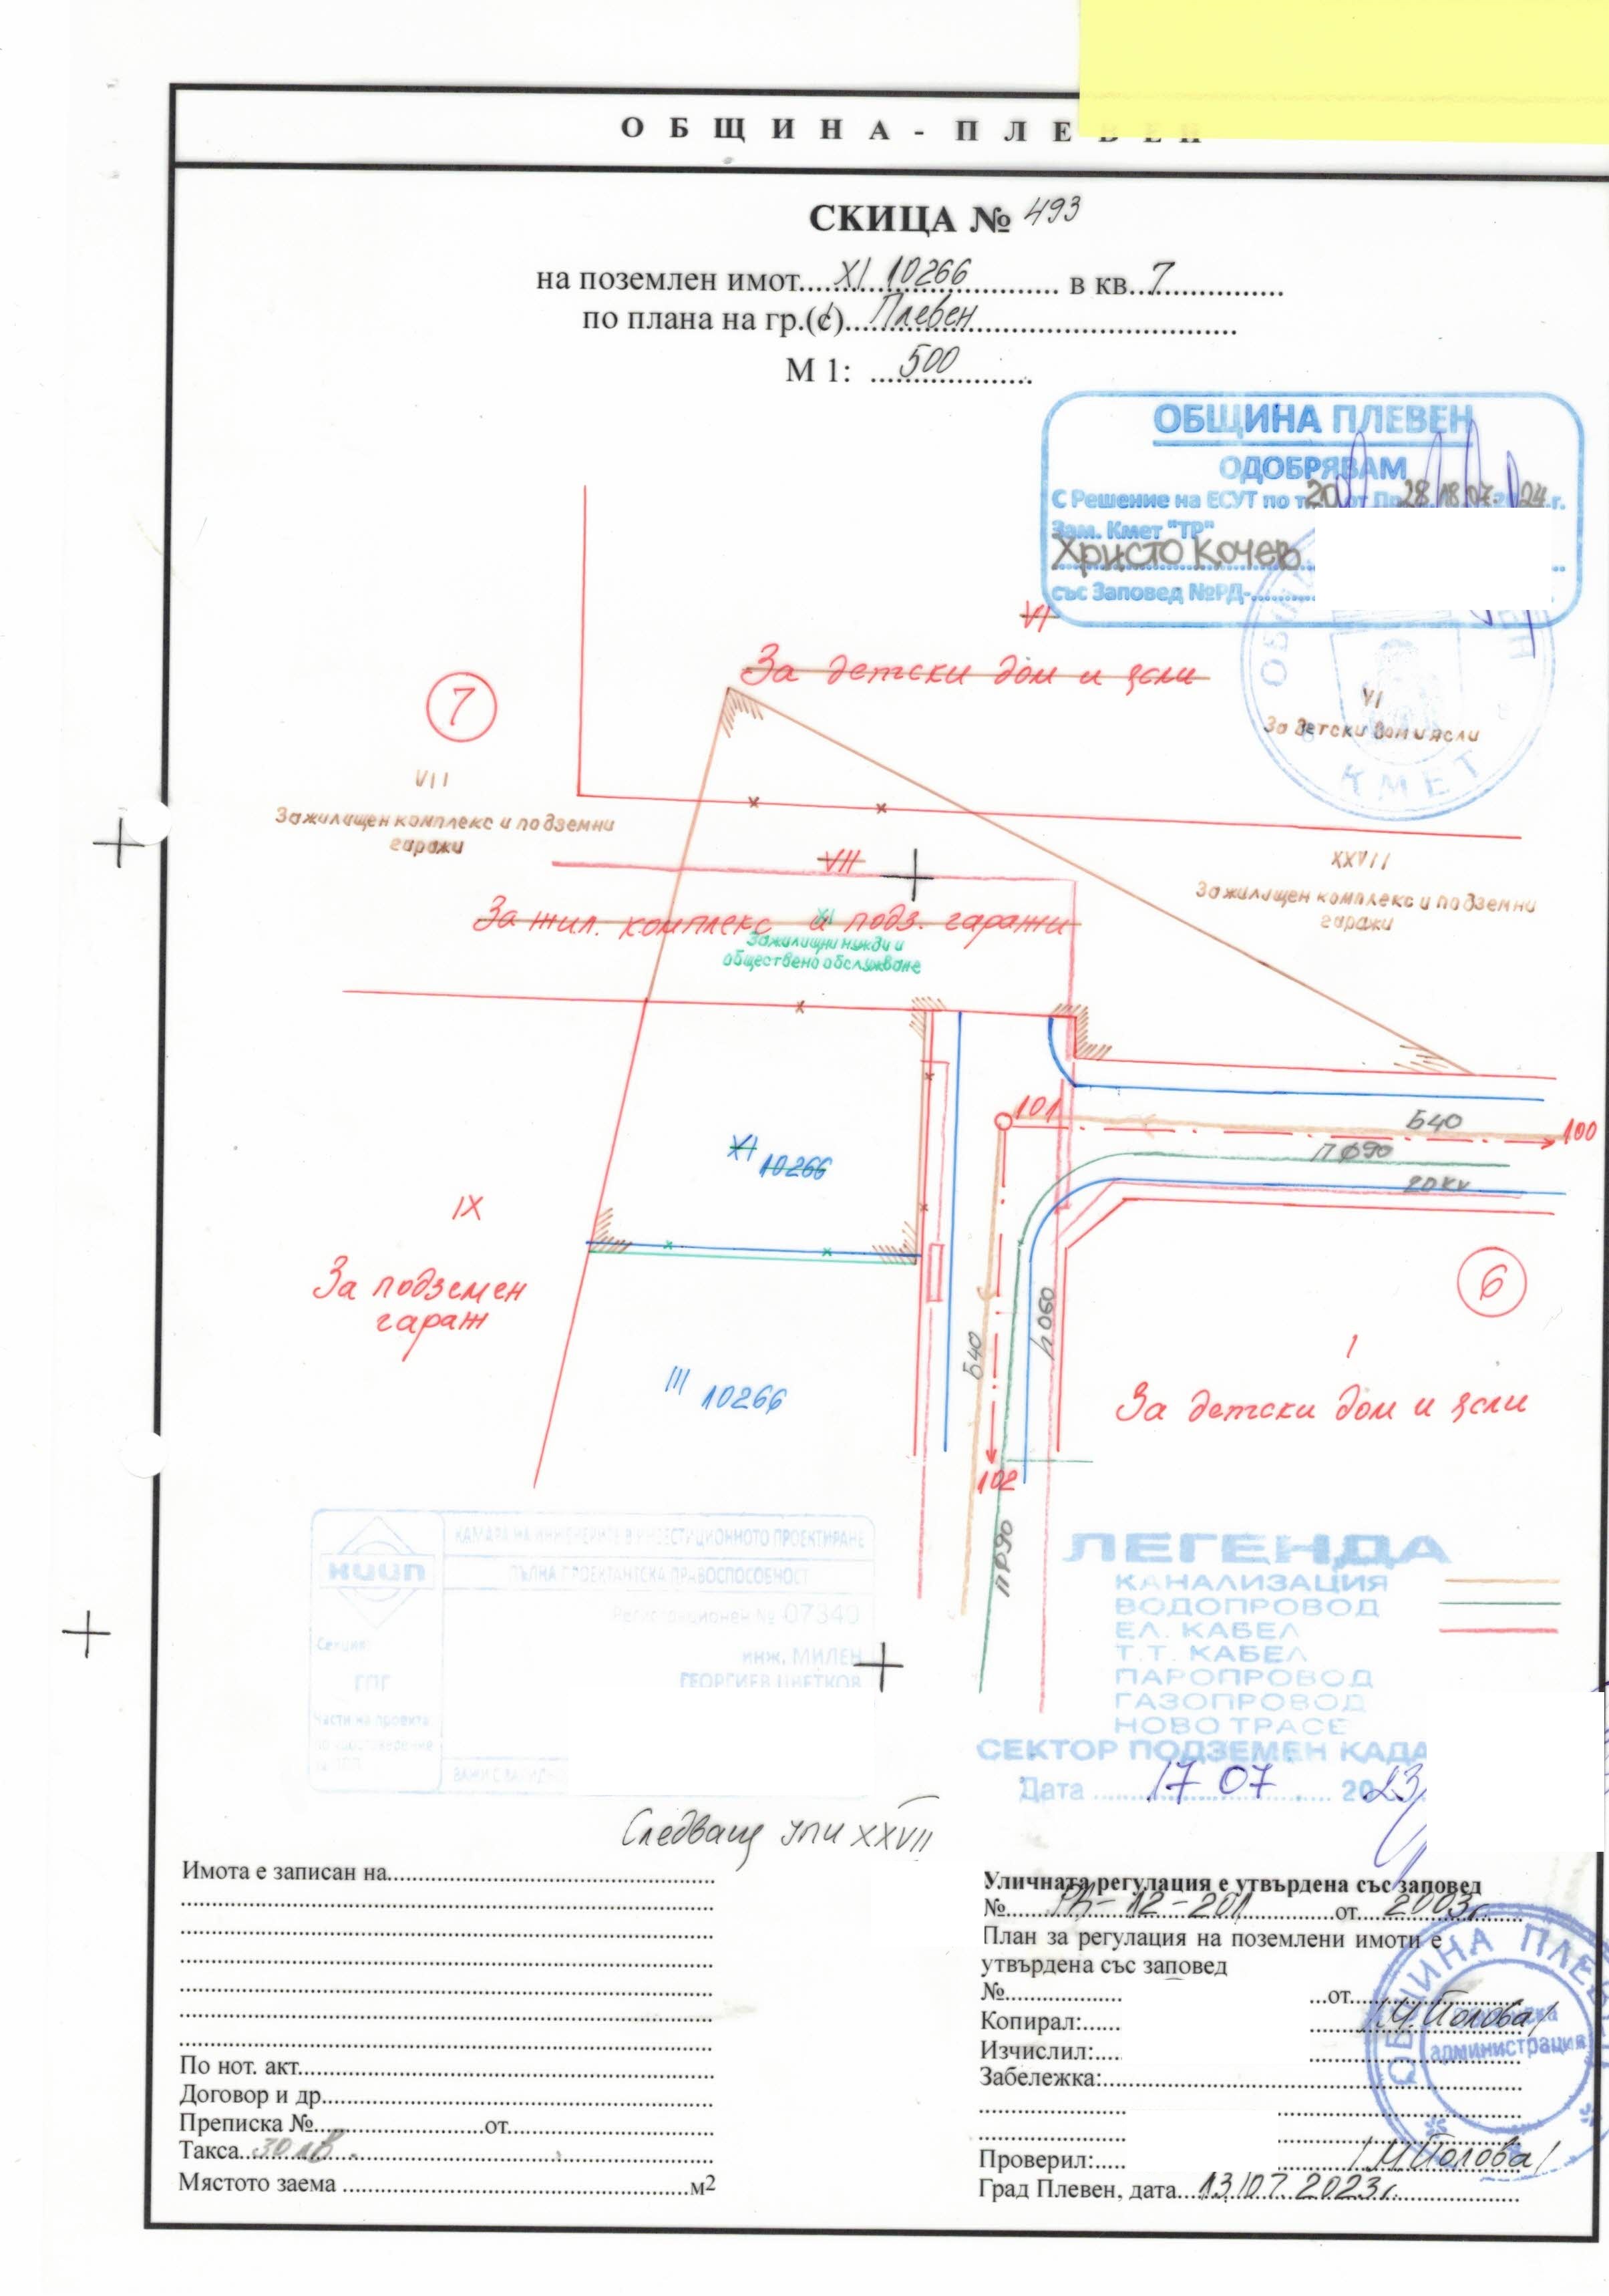 ОБЩИНА - ПЛЕВЕН
СКИЦА № 493
на поземлен имот... XI 10266 ... в кв. 7
по плана на гр.(с)... Плевен
М 1: ...500
ОБЩИНА ПЛЕВЕН
ОДОБРЯВАМ
С Решение на ЕСУТ по т. 20 от Пр. 28/18.07.2024 г.
Зам. Кмет "ТР"
Христо Кочев
със Заповед №РД-
VI
За детски дом и ясли
7
VI
За детски дом и ясли
КМЕТ
VII
За жилищен комплекс и подземни
гаражи
VII
XXVII
За жилищен комплекс и подземни
гаражи
За жил. комплекс и подз. гаражи
XI
За жилищни нужди и
обществено обслужване
101
Б40
100
ПФ90
20KV
XI 10266
IX
За подземен
гараж
6
Б40
III 10266
I
За детски дом и ясли
102
ПФ90
КАМАРА НА ИНЖЕНЕРИТЕ В ИНВЕСТИЦИОННОТО ПРОЕКТИРАНЕ
КИИП
ПЪЛНА ПРОЕКТАНТСКА ПРАВОСПОСОБНОСТ
Регистрационен № 07340
Секция:
инж. МИЛЕН
ГЕОРГИЕВ ЦВЕТКОВ
ГПГ
Части на проекта:
ЛЕГЕНДА
КАНАЛИЗАЦИЯ
ВОДОПРОВОД
ЕЛ. КАБЕЛ
Т.Т. КАБЕЛ
ПАРОПРОВОД
ГАЗОПРОВОД
НОВО ТРАСЕ
СЕКТОР ПОДЗЕМЕН КАДА
Дата 17 07 2023
Следващ упи XXVII
Имота е записан на
По нот. акт
Договор и др.
Преписка № от
Такса 30 лв.
Мястото заема м2
Уличната регулация е утвърдена със заповед
№ РД-12-201 от 2003г.
План за регулация на поземлени имоти е
утвърдена със заповед
№ от
Копирал: /М. Йолова/
Изчислил:
Забележка:
Проверил: /М Йолова/
Град Плевен, дата 13.07.2023г.
ОБЩИНА ПЛЕВЕН
администрация